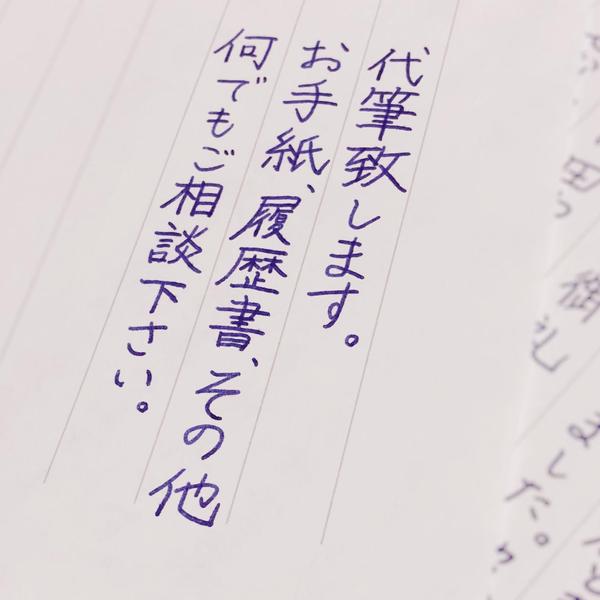 代筆致します。
お手紙、履歴書、その他
何でもご相談下さい。